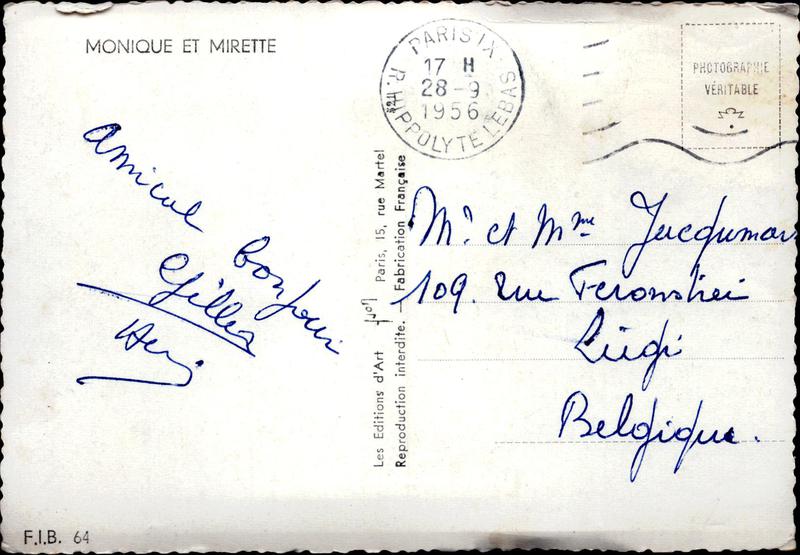 MONIQUE ET MIRETTE
PARIS IX
17 H
28-9
1956
R. HIPPOLYTE LEBAS
PHOTOGRAPHIE
VÉRITABLE
Amical bonjour
Gilles
Les Editions d'Art Paris, 15, rue Martel
Reproduction interdite. — Fabrication Française
Mr et Mme
109. Rue
Liège
Belgique.
F.I.B. 64